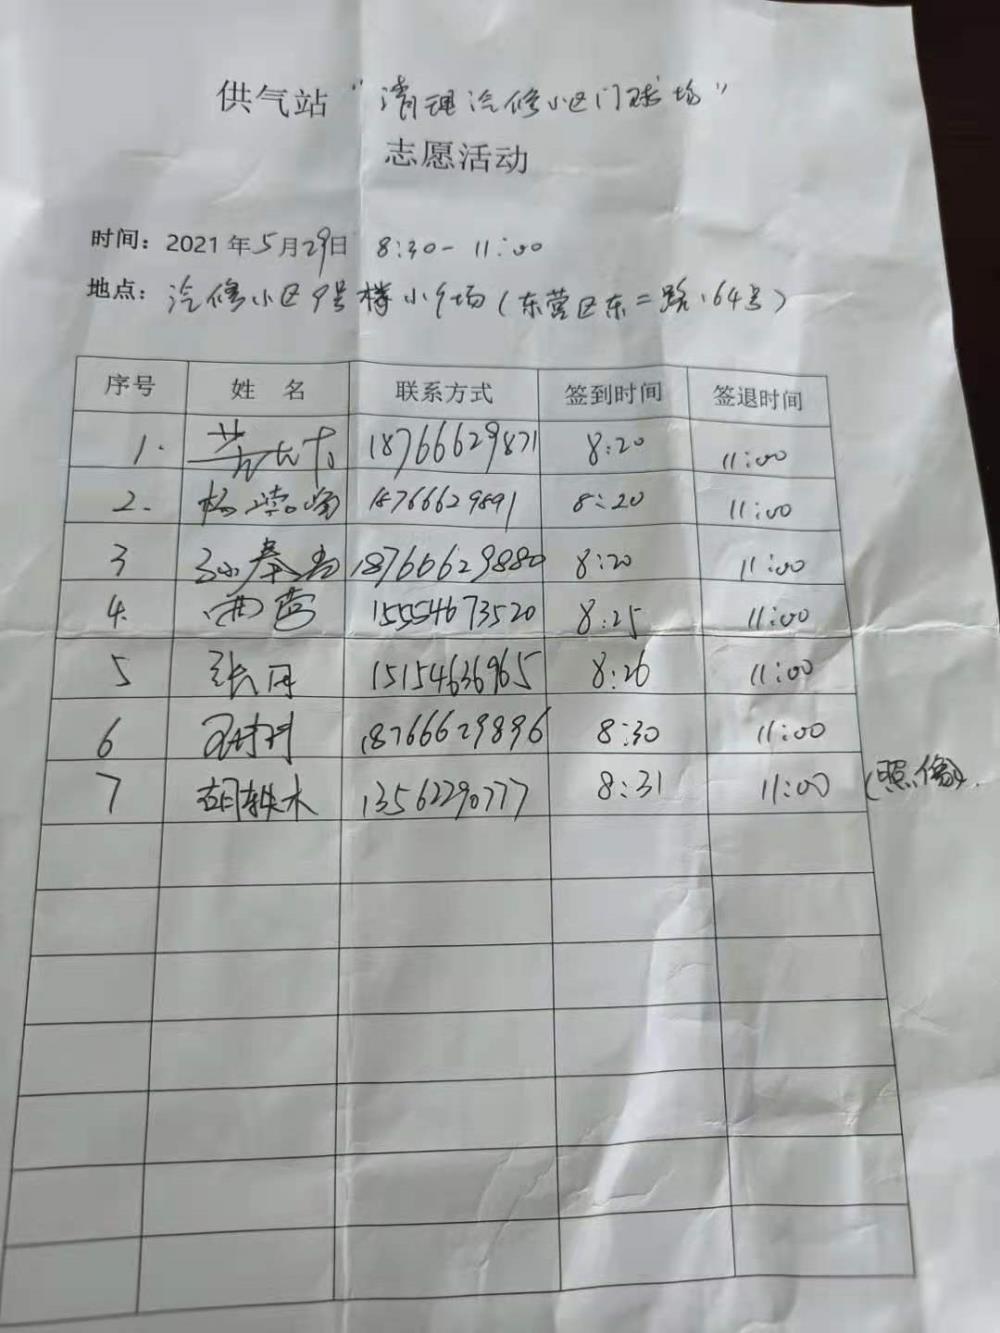 供气站“清理汽修小区门球场”
志愿活动
时间：2021年5月29日 8:30-11:00
地点：汽修小区9号楼小广场（东营区东二路164号）
序号 姓 名 联系方式 签到时间 签退时间
1. 18766629871 8:20 11:00
2. 杨 18766629891 8:20 11:00
3 孙秦 18766629880 8:20 11:00
4. 15554673520 8:25 11:00
5 张丹 15154636965 8:26 11:00
6 18766629896 8:30 11:00
7 胡轶木 13562290777 8:31 11:00 （照像）